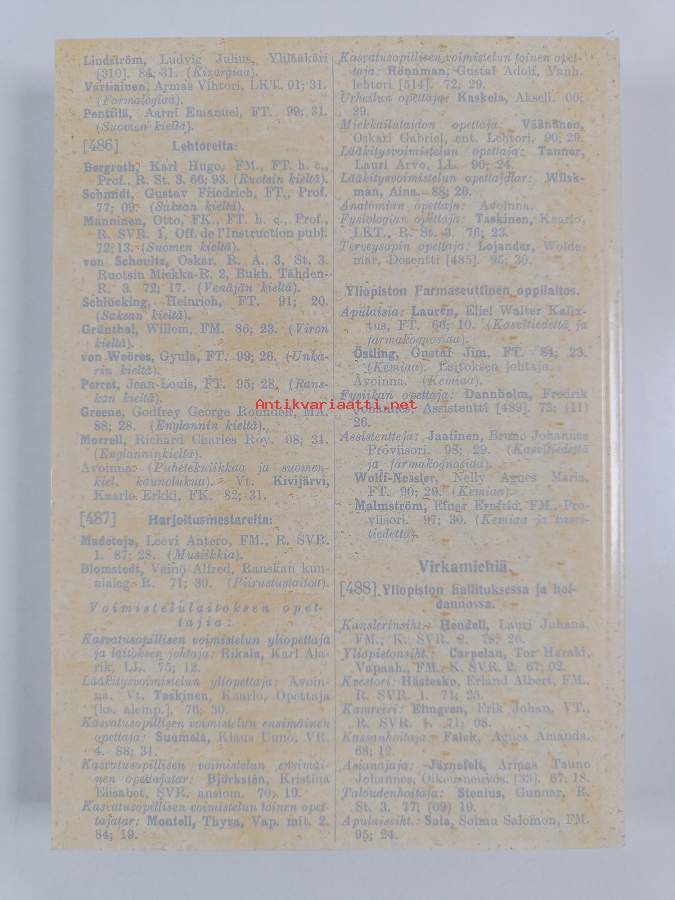 Lindström, Ludvig Julius, Ylilääkäri
[310]. 84; 31. (Kirurgiaa).
Vartiainen, Armas Vihtori, LKT. 01; 31.
(Farmalogiaa).
Penttilä, Aarni Emanuel, FT. 99; 31.
(Suomen kieltä).
[486] Lehtoreita:
Bergroth, Karl Hugo, FM., FT. h. c.,
Prof., R. St. 3. 66; 93. (Ruotsin kieltä).
Schmidt, Gustav Friedrich, FT., Prof.
77; 09. (Saksan kieltä).
Manninen, Otto, FK., FT. h. c., Prof.,
R. SVR. 1, Off. de l'Instruction publ.
72; 13. (Suomen kieltä).
von Schoultz, Oskar, R. A. 3, St. 3.
Ruotsin Miekka-R. 2, Bukh. Tähden-
R. 3. 72; 17. (Venäjän kieltä).
Schlücking, Heinrich, FT. 91; 20.
(Saksan kieltä).
Grünthal, Willem, FM. 86; 23. (Viron
kieltä).
von Weöres, Gyula, FT. 99; 26. (Unka-
rin kieltä).
Perret, Jean-Louis, FT. 95; 28. (Rans-
kan kieltä).
Greene, Godfrey George Roundell, MA.
88; 28. (Englannin kieltä).
Morrell, Richard Charles Roy. 08; 31.
(Englanninkieltä).
Avoinna: (Puhetekniikkaa ja suomen-
kiel. kaunolukua). Vt. Kivijärvi,
Kaarlo Erkki, FK. 82; 31.
[487] Harjoitusmestareita:
Madetoja, Leevi Antero, FM., R. SVR.
1. 87; 28. (Musiikkia).
Blomstedt, Väinö Alfred, Ranskan kun-
nialeg. R. 71; 30. (Piirustustaitoa).
Voimistelulaitoksen opet-
tajia:
Kasvatusopillisen voimistelun yliopettaja
ja laitoksen johtaja: Hikala, Karl Ala-
rik, LL. 75; 12.
Lääkitysvoimistelun yliopettaja: Avoin-
na. Vt. Taskinen, Kaarlo, Opettaja
[ks. alemp.]. 76; 30.
Kasvatusopillisen voimistelun ensimäinen
opettaja: Suomela, Klaus Uuno, VR.
4. 88; 31.
Kasvatusopillisen voimistelun ensimäi-
nen opettajatar: Björkstén, Kristina
Elisabet, SVR. ansiom. 70; 19.
Kasvatusopillisen voimistelun toinen opet-
tajatar: Montell, Thyra, Vap. mit. 2.
84; 19.
Kasvatusopillisen voimistelun toinen opet-
taja: Rönnman, Gustaf Adolf, Vanh.
lehtori [514]. 72; 29.
Urheilun opettaja: Kaskela, Akseli. 00;
29.
Miekkailutaidon opettaja: Väänänen,
Oskari Gabriel, ent. Lehtori. 90; 29.
Lääkitysvoimistelun opettaja: Tanner,
Lauri Arvo, LL. 90; 24.
Lääkitysvoimistelun opettajatar: Wilsk-
man, Aina. 88; 20.
Anatomian opettaja: Avoinna.
Fysiologian opettaja: Taskinen, Kaarlo,
LKT., R. St. 3. 76; 23.
Terveysopin opettaja: Lojander, Wolde-
mar, Dosentti [485]. 95; 30.
Yliopiston Farmaseuttinen oppilaitos.
Apulaisia: Laurén, Eliel Walter Kalix-
tus, FT. 66; 10. (Kasvitiedettä ja
farmakognosiaa).
Östling, Gustaf Jim. FT. 84; 23.
(Kemiaa). Laitoksen johtaja.
Avoinna. (Kemiaa).
Fysiikan opettaja: Dannholm, Fredrik
Johannes, Assistentti [489]. 73; (11)
26.
Antikvariaatti.net
Assistentteja: Jaatinen, Bruno Johannes
Proviisori. 98; 29. (Kasvitiedettä
ja farmakognosiaa).
Wolff-Nessler, Nelly Agnes Maria,
FT. 90; 20. (Kemiaa).
Malmström, Einar Ernfrid, FM., Pro-
viisori. 97; 30. (Kemiaa ja kasvi-
tiedettä).
Virkamiehiä.
[488] Yliopiston hallituksessa ja hoi-
dannossa.
Kanslerinsiht.: Hendell, Lauri Juhana,
FM., K. SVR. 2. 78; 20.
Yliopistonsiht.: Carpelan, Tor Harald,
Vapaah., FM., K. SVR. 2. 67; 02.
Kvestori: Hästesko, Erland Albert, FM.,
R. SVR. 1. 71; 25.
Kamreeri: Elmgren, Erik Johan, VT.,
R. SVR. 1. 71; 08.
Kassanhoitaja: Falck, Agnes Amanda.
68; 12.
Asianajaja: Järnefelt, Armas Tauno
Johannes, Oikeusneuvos. [33]. 67; 18.
Taloudenhoitaja: Stenius, Gunnar, R.
St. 3. 77; (09) 19.
Apulaissiht.: Sola, Solmu Salomon, FM.
95; 24.